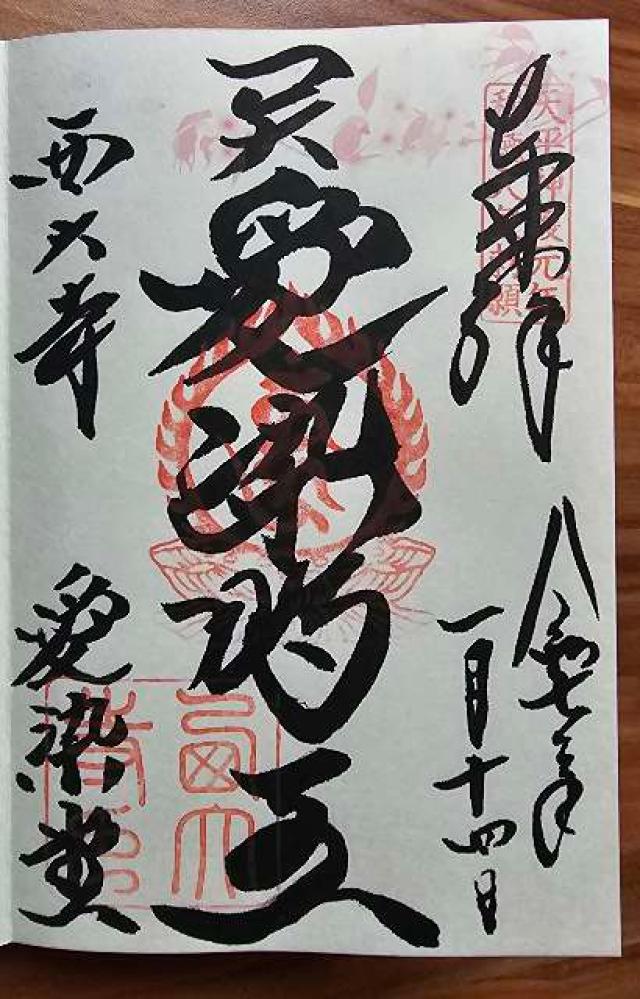 奉拝
天平神護元年
令和七年
一月十四日
愛染明王
西大寺
愛染堂